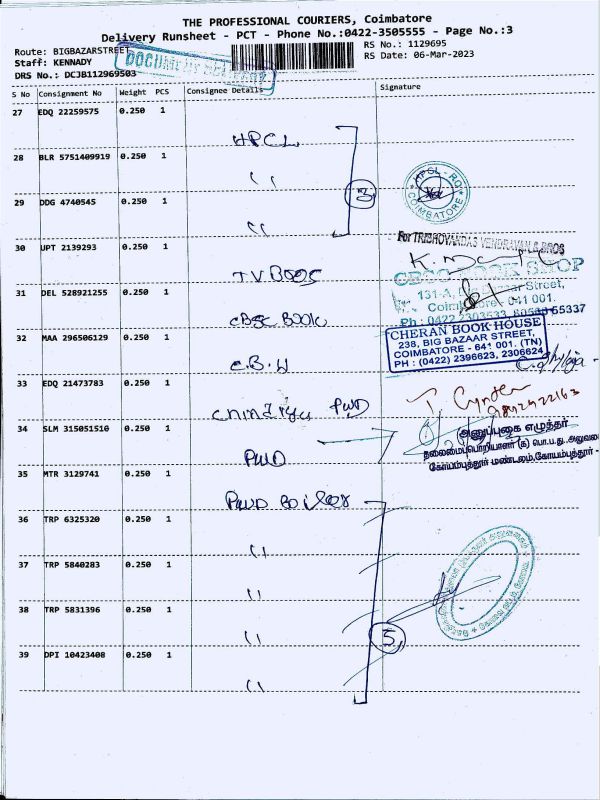 THE PROFESSIONAL COURIERS, Coimbatore
Delivery Runsheet - PCT - Phone No.:0422-3505555 - Page No.:3
Route: BIGBAZARSTREET
RS No.: 1129695
Staff: KENNADY
RS Date: 06-Mar-2023
DRS No.: DCJB112969503
DOCUMENT
S No Consignment No Weight PCS Consignee Details Signature
27 EDQ 22259575 0.250 1
HPCL
28 BLR 5751409919 0.250 1
((
29 DDG 4740545 0.250 1
((
3
HPCL - RO
COIMBATORE
30 UPT 2139293 0.250 1
TV BOOS
For TRIBHOVANDAS VENDRAVAN & BROS
31 DEL 528921255 0.250 1
CBSC BOOK
CBSC BOOK SHOP
131-A, Street,
641 001.
Ph : 0422 2303533, 65337
32 MAA 296506129 0.250 1
C.B.H
CHERAN BOOK HOUSE
238, BIG BAZAAR STREET,
COIMBATORE - 641 001. (TN)
PH : (0422) 2396623, 2306624
33 EDQ 21473783 0.250 1
PWD
34 SLM 315051510 0.250 1
PWD
அனுப்புகை எழுத்தர்
தலைமைப்பொறியாளர் (க) பொ.ப.து.அலுவல
கோயம்புத்தூர் மண்டலம்,கோயம்புத்தூர் -
35 MTR 3129741 0.250 1
PWD
36 TRP 6325320 0.250 1
((
37 TRP 5840283 0.250 1
((
38 TRP 5831396 0.250 1
((
5
39 DPI 10423408 0.250 1
((